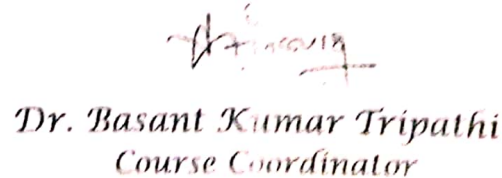 Dr. Basant Kumar Tripathi
Course Coordinator